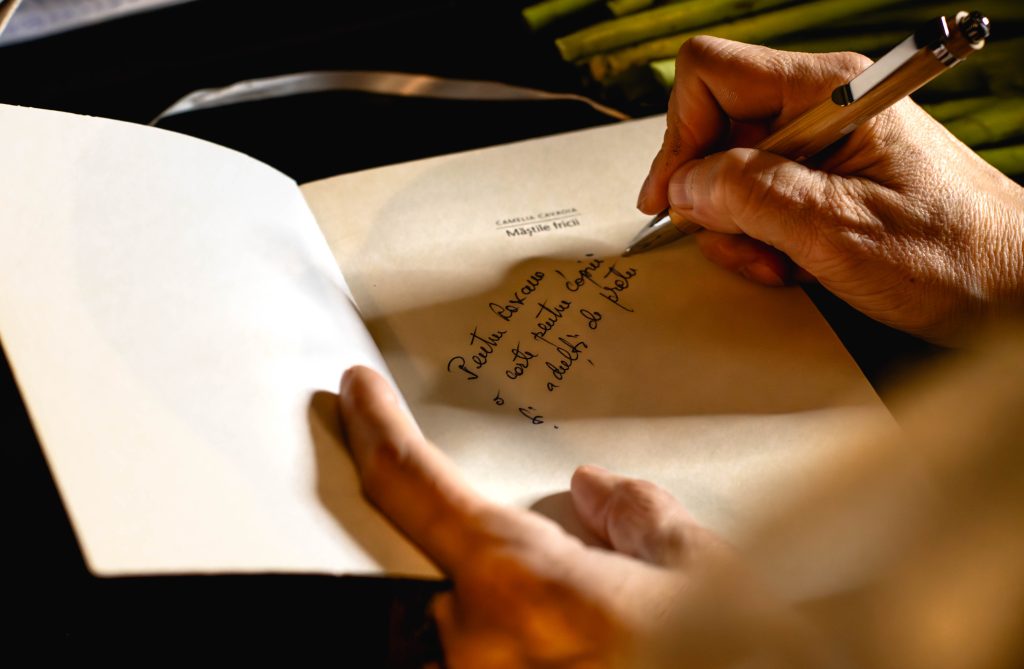 CAMELIA CAVADIA
Măștile fricii
Pentru Roxana
o carte pentru copiii
și adulți de